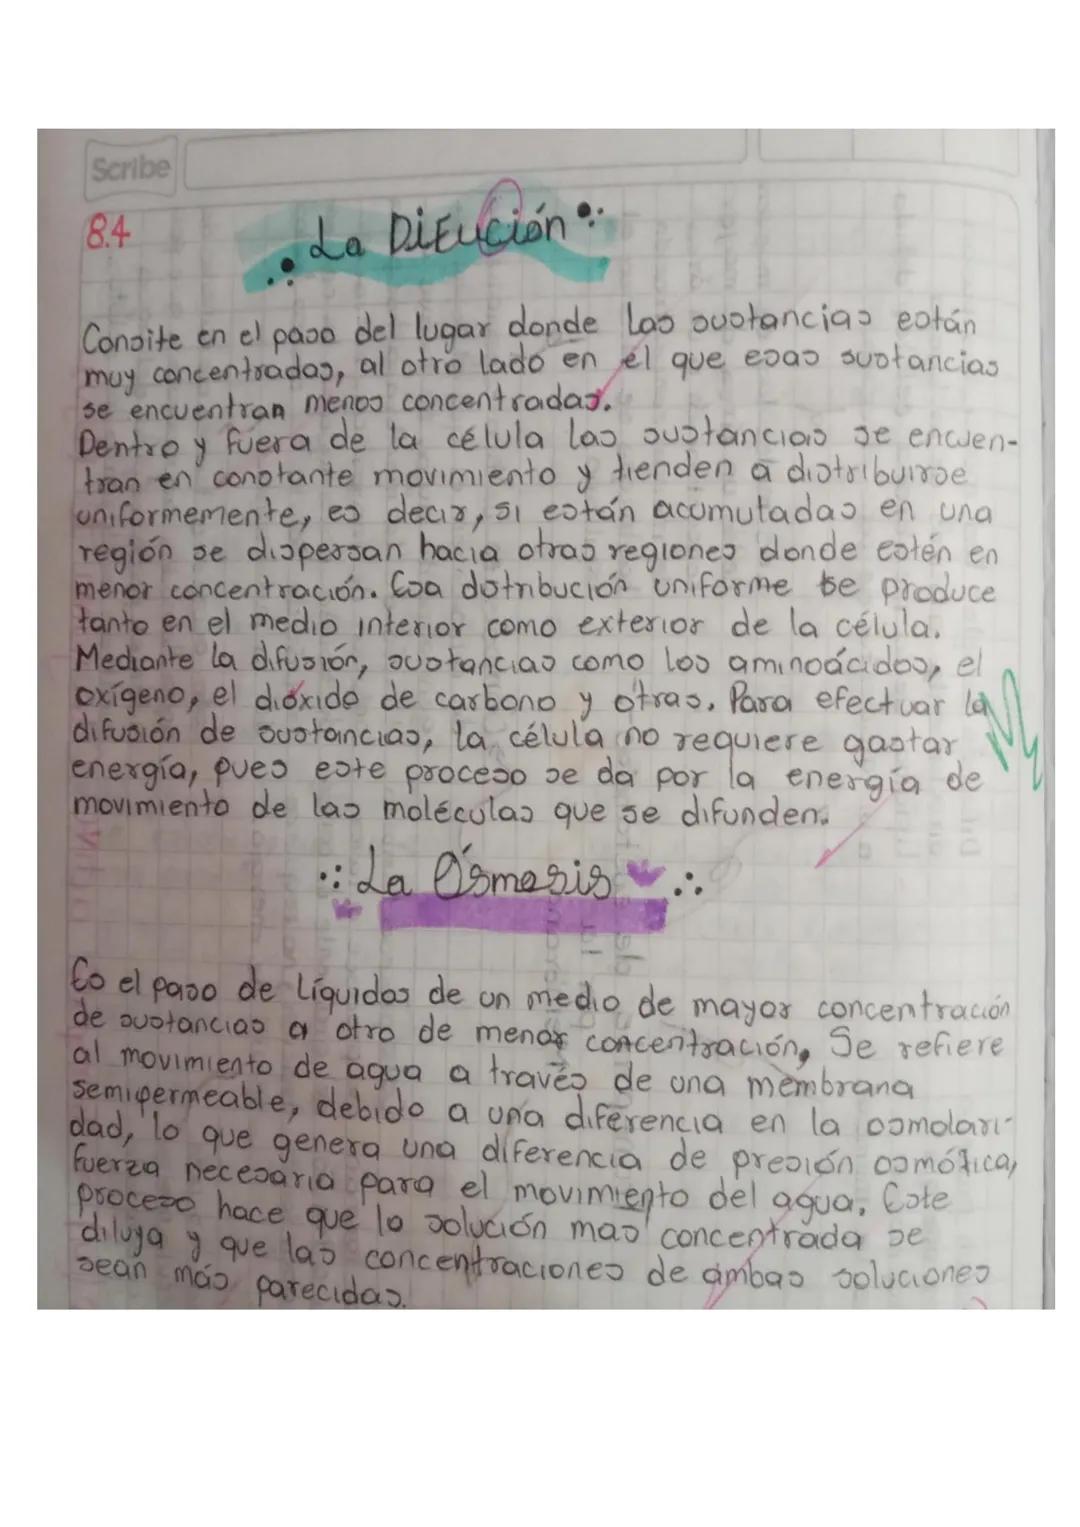 Scribe
8.4
La Difución
Consite en el paso del lugar donde las sustancias están
muy concentradas, al otro lado en el que esas sustancias
se encuentran menos concentradas.
Dentro y fuera de la célula las sustancias se encuen-
tran en constante movimiento y tienden a distribuirse
uniformemente, es decir, si están acumutadas en una
región se dispersan hacia otras regiones donde estén en
menor concentración. Esa distribución uniforme se produce
tanto en el medio interior como exterior de la célula.
Mediante la difusión, sustancias como los aminoácidos, el
oxígeno, el dióxido de carbono y otras. Para efectuar la
difusión de sustancias, la célula no requiere gastar
energía, pues este proceso se da por la energía de
movimiento de las moléculas que se difunden.
La Ósmosis
Es el paso de líquidos de un medio de mayor concentración
de sustancias a otro de menor concentración, Se refiere
al movimiento de agua a través de una membrana
semipermeable, debido a una diferencia en la osmolari-
dad, lo que genera una diferencia de presión osmótica,
fuerza necesaria para el movimiento del agua. Este
proceso hace que la solución mas concentrada se
diluya y que las concentraciones de ambas soluciones
sean más parecidas.